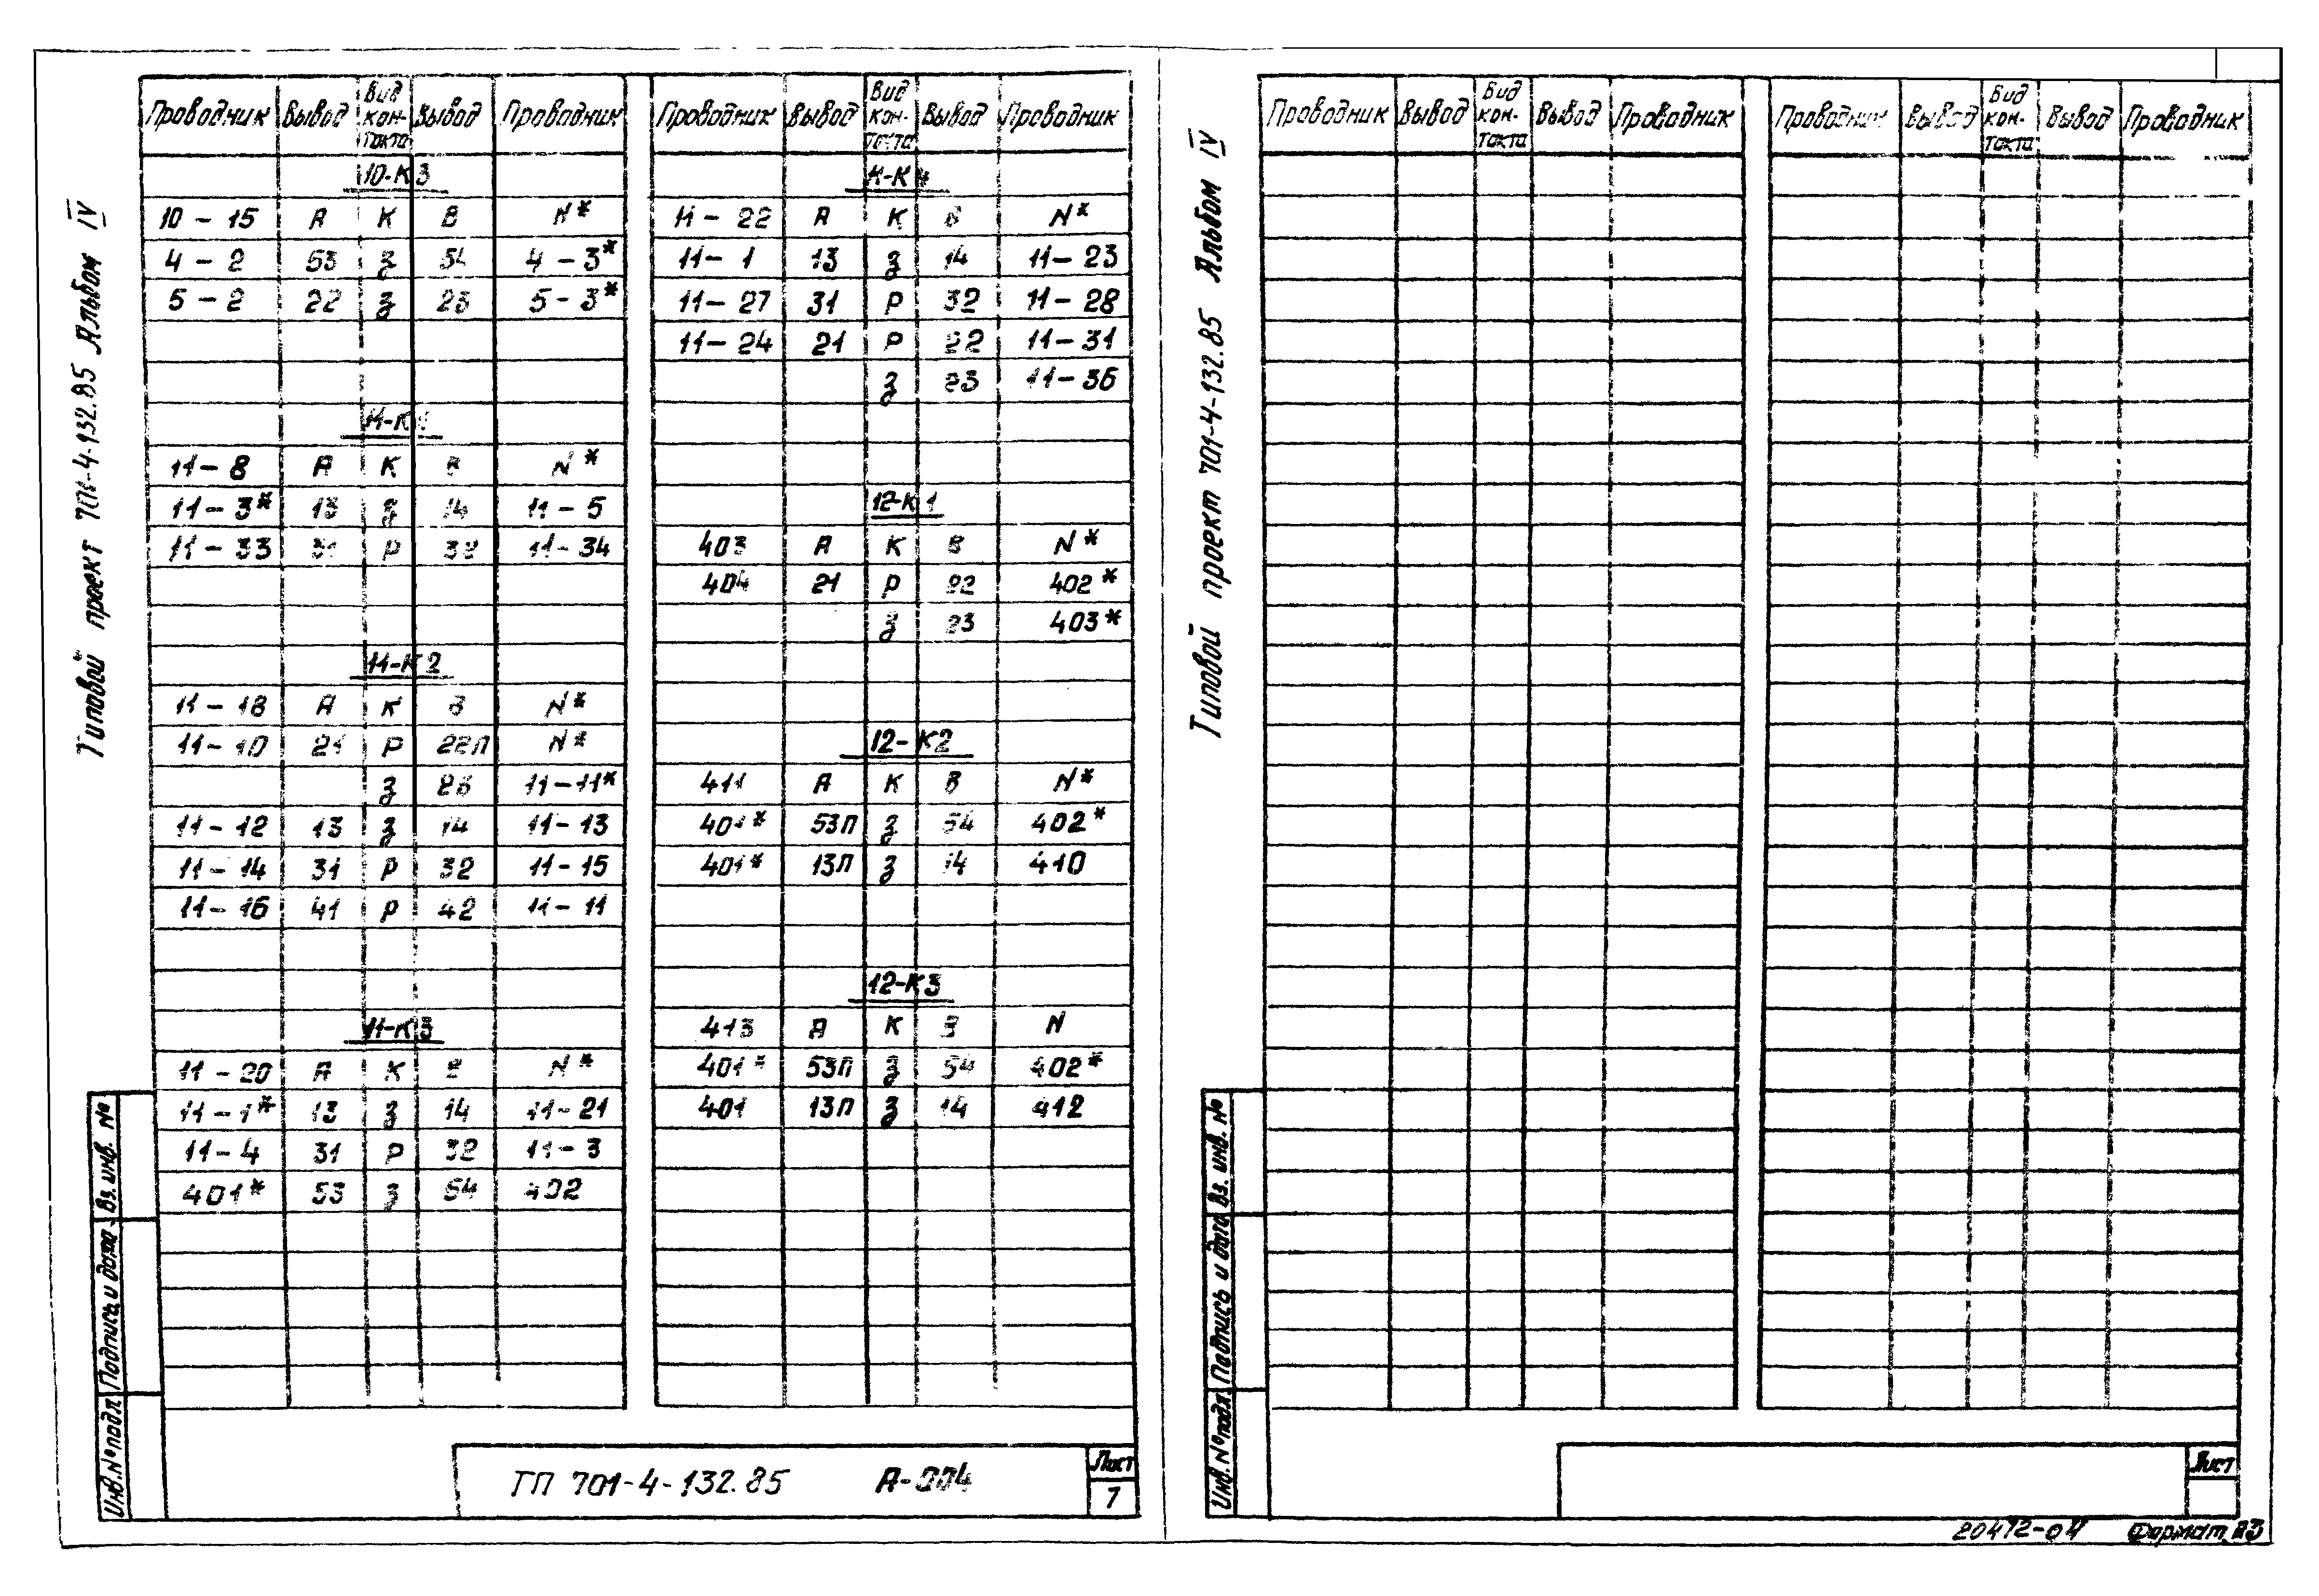 Типовой проект 701-4-132.85 Альбом IV
Проводник Вывод Вид контакта Вывод Проводник
10-К3
10 - 15 А К В N*
4 - 2 53 З 54 4 - 3*
5 - 2 22 З 23 5 - 3*
11-К1
11 - 8 А К В N*
11 - 3* 13 З 14 11 - 5
11 - 33 31 Р 32 11 - 34
11-К2
11 - 18 А К В N*
11 - 10 21 Р 22П N*
З 23 11 - 11*
11 - 12 13 З 14 11 - 13
11 - 14 31 Р 32 11 - 15
11 - 16 41 Р 42 11 - 11
11-К3
11 - 20 А К В N*
11 - 1* 13 З 14 11 - 21
11 - 4 31 Р 32 11 - 3
401* 53 З 54 402
Проводник Вывод Вид контакта Вывод Проводник
11-К4
11 - 22 А К В N*
11 - 1 13 З 14 11 - 23
11 - 27 31 Р 32 11 - 28
11 - 24 21 Р 22 11 - 31
З 23 11 - 36
12-К1
403 А К В N*
404 21 Р 22 402*
З 23 403*
12-К2
411 А К В N*
401* 53П З 54 402*
401* 13П З 14 410
12-К3
413 А К В N
401* 53П З 54 402*
401 13П З 14 412
Инв.№подл. Подпись и дата Вз. инв. №
ТП 701-4-132.85 А-004
Лист
7
Типовой проект 701-4-132.85 Альбом IV
Проводник Вывод Вид контакта Вывод Проводник
Проводник Вывод Вид контакта Вывод Проводник
Инв.№подл. Подпись и дата Вз. инв. №
Лист
20472-04 Формат А3